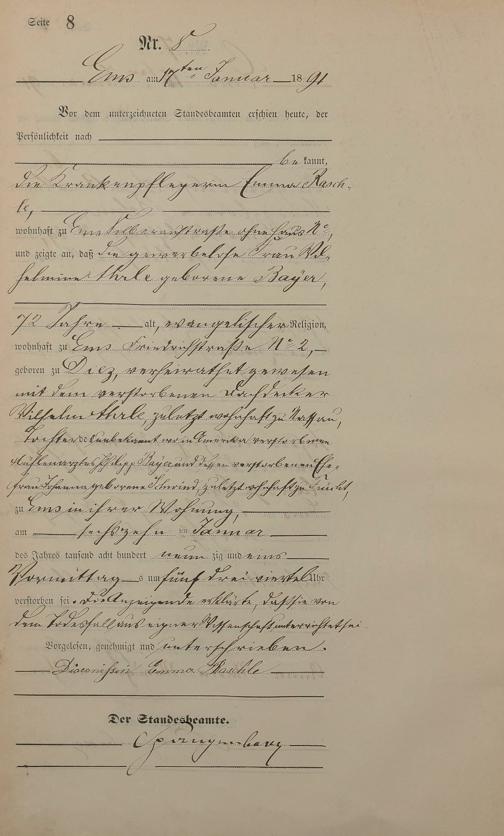 Seite 8
Nr. 8
Ems am 17ten Januar 1891
Vor dem unterzeichneten Standesbeamten erschien heute, der
Persönlichkeit nach
be kannt,
die Krankenpflegerin Emma Rasch-
le,
wohnhaft zu Ems ohne Haus No,
und zeigte an, daß die gewerbelose Frau Wil-
helmine Thele geborene Bayer,
72 Jahre alt, evangelischer Religion,
wohnhaft zu Ems Friedrichstraße No 2,
geboren zu Diez, verheirathet gewesen
mit dem verstorbenen Dachdecker
Wilhelm Thele, zuletzt wohnhaft zu Nassau,
Tochter des unbekannt wo in Amerika verstorbenen
Philipp Bayer und dessen verstorbenen Ehe-
frau Johanna geborene zuletzt wohnhaft zu
zu Ems in ihrer Wohnung,
am sechszehn ten Januar
des Jahres tausend acht hundert neun zig und eins
Vormittags um fünf drei viertel Uhr
verstorben sei. Die Anzeigende erklärte, daß sie von
dem Todesfall aus eigner Wissenschaft unterrichtet sei
Vorgelesen, genehmigt und unterschrieben.
Diaconissin Emma Raschle
Der Standesbeamte.
Spangenberg